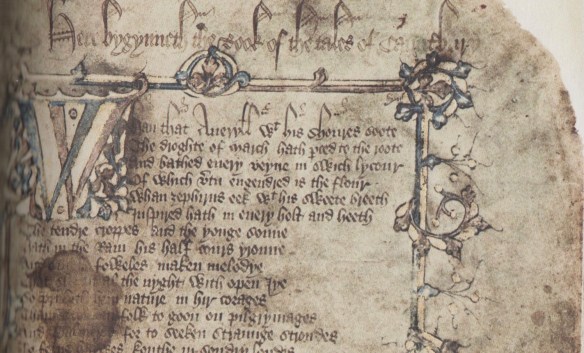 Here bygynneth the Book of the tales of Caunterbury
Whan that Aueryll wt his shoures soote
The droghte of march hath pced to the roote
And bathed euery veyne in swich lycour
Of which vtu engendred is the flour
Whan zephirus eek wt his sweete breeth
Inspired hath in euery holt and heeth
The tendre croppes and the yonge sonne
Hath in the Ram his half cours yronne
foweles maken melodye
al the nyght with open Iye
hem nature in hir corages
folk to goon on pilgrymages
And for to seeken straunge strondes
kouthe in sondry londes